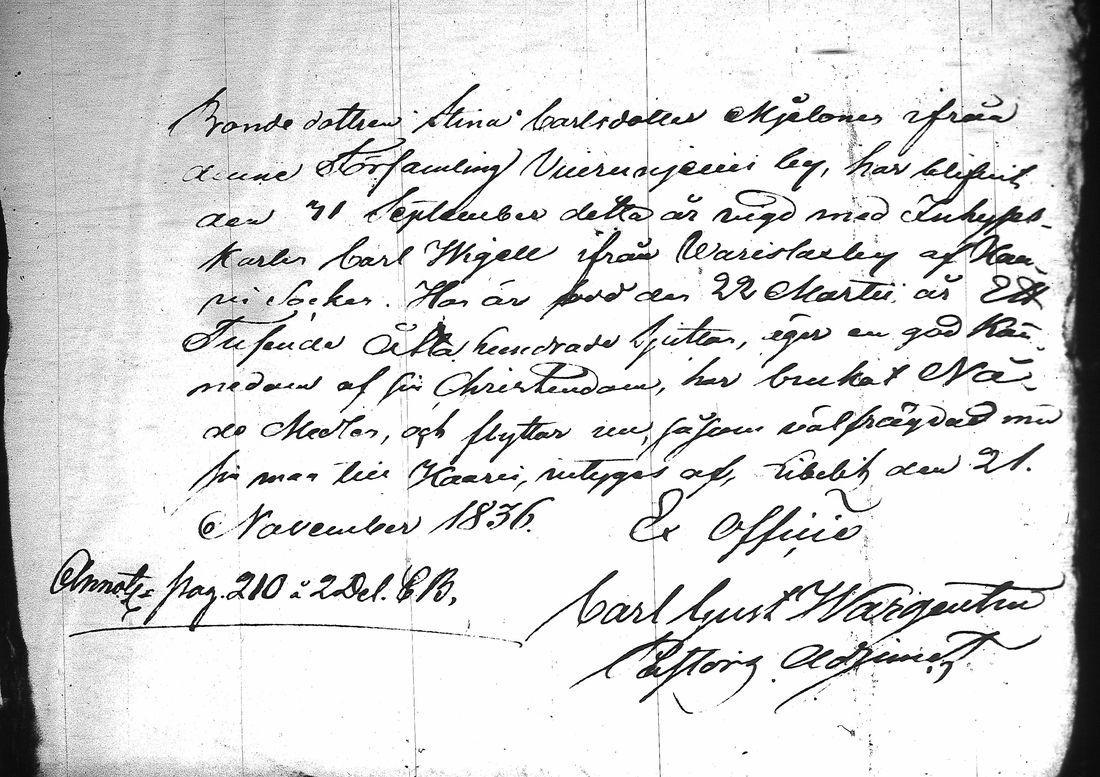 Bondedottren Stina Carlsdotter Mjölones ifrån
denne Församling by, har blifvit
den September detta år vigd med Inhyses-
Karlen Carl Wigell ifrån Warislaxby af Kaa-
vi Socken. Hon är född den 22 Martii år Ett
Tusende Åtta hundrade Sjutton, äger en god Kän-
nedom af sin Christendom, har brukat Nå-
de Medlen, och flyttar nu, såsom välfrägdad med
sin man till Kaavi, intygas af, Libelits den 21.
November 1836. Ex Officio
Annot: pag. 210 i 2 Del. C B.
Carl Gust Wargentin
Pastoris Adjunct